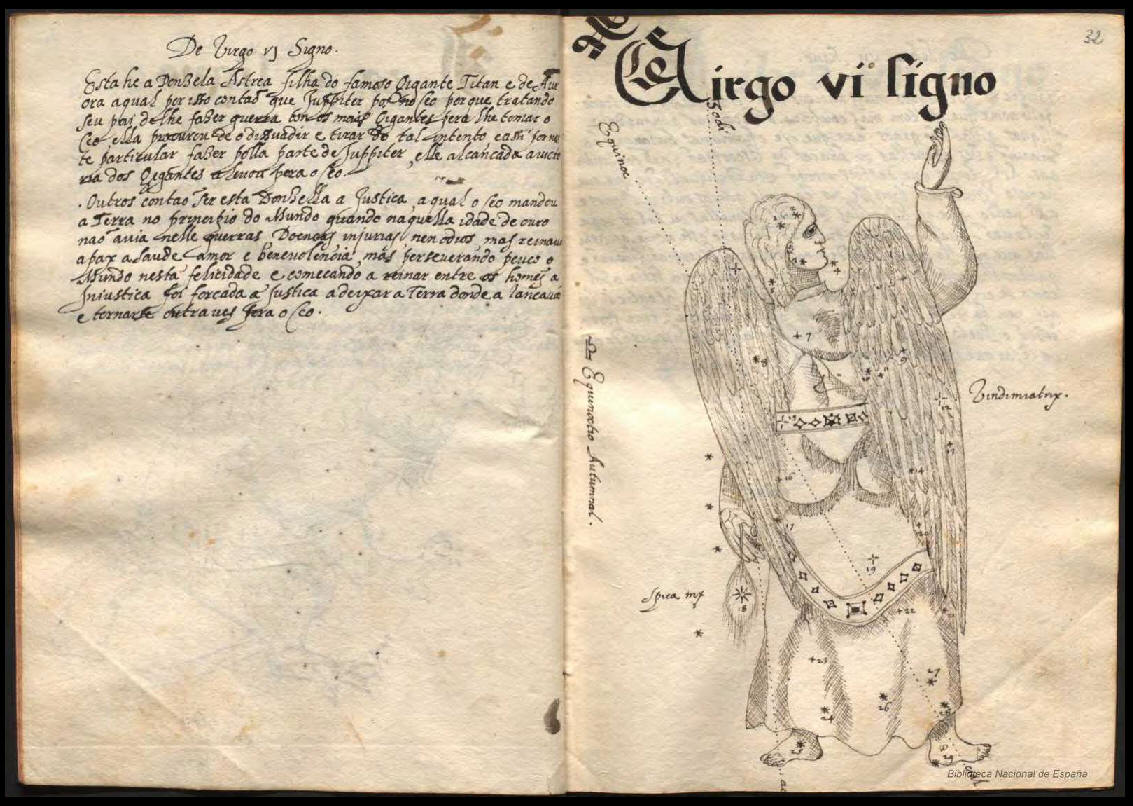 De Virgo vj Signo.
Esta he a Donzela Astrea filha do famoso Gigante Titan e de Aur
ora a qual por isso contão que Juppiter pos no seo porque tratando
seu pay de lhe fazer guerra com os mais Gigantes pera lhe tomar o
Ceo ella procurou de o dissuadir e tirar do tal intento e assi forno
te particular fazer polla parte de Juppiter, elle alcançada a victo
ria dos Gigantes a levou pera o seo.
. Outros contão ser esta Donzella a Justiça a qual o seo mandou
a Terra no principio do Mundo quando naquella idade de ouro
não avia nelle guerras Doenças injurias nen odios mas reinava
a paz a saude amor e benevolencia, mas perseverando pouco o
Mundo nesta felicidade e começando a reinar entre os homẽs a
Injustiça foi forçada a Justiça a deixar a Terra donde a lançava
e tornarse outra ves pera o seo.
32
Virgo vi signo
Zodi
Equinoc
Vindimiatrix.
De Equinoctio Autumnal.
Spica mp
Biblioteca Nacional de España